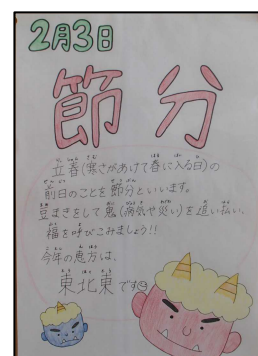 2月3日
節分
立春(寒さがあけて春に入る日)の
前日のことを節分といいます。
豆まきをして鬼(病気や災い)を追い払い、
福を呼びこみましょう!!
今年の恵方は、
東北東です☺